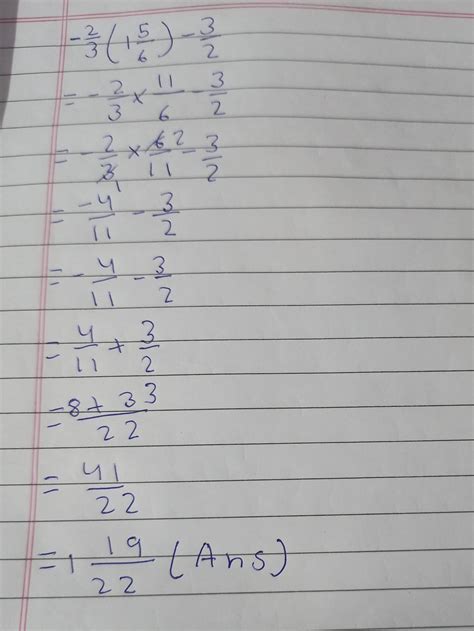 -2/3 (1 5/6) - 3/2
= -2/3 × 11/6 - 3/2
= -2/3 1 × 6 2/11 - 3/2
= -4/11 - 3/2
= -4/11 - 3/2
= 4/11 + 3/2
= -8+33/22
= 41/22
= 1 19/22 (Ans)